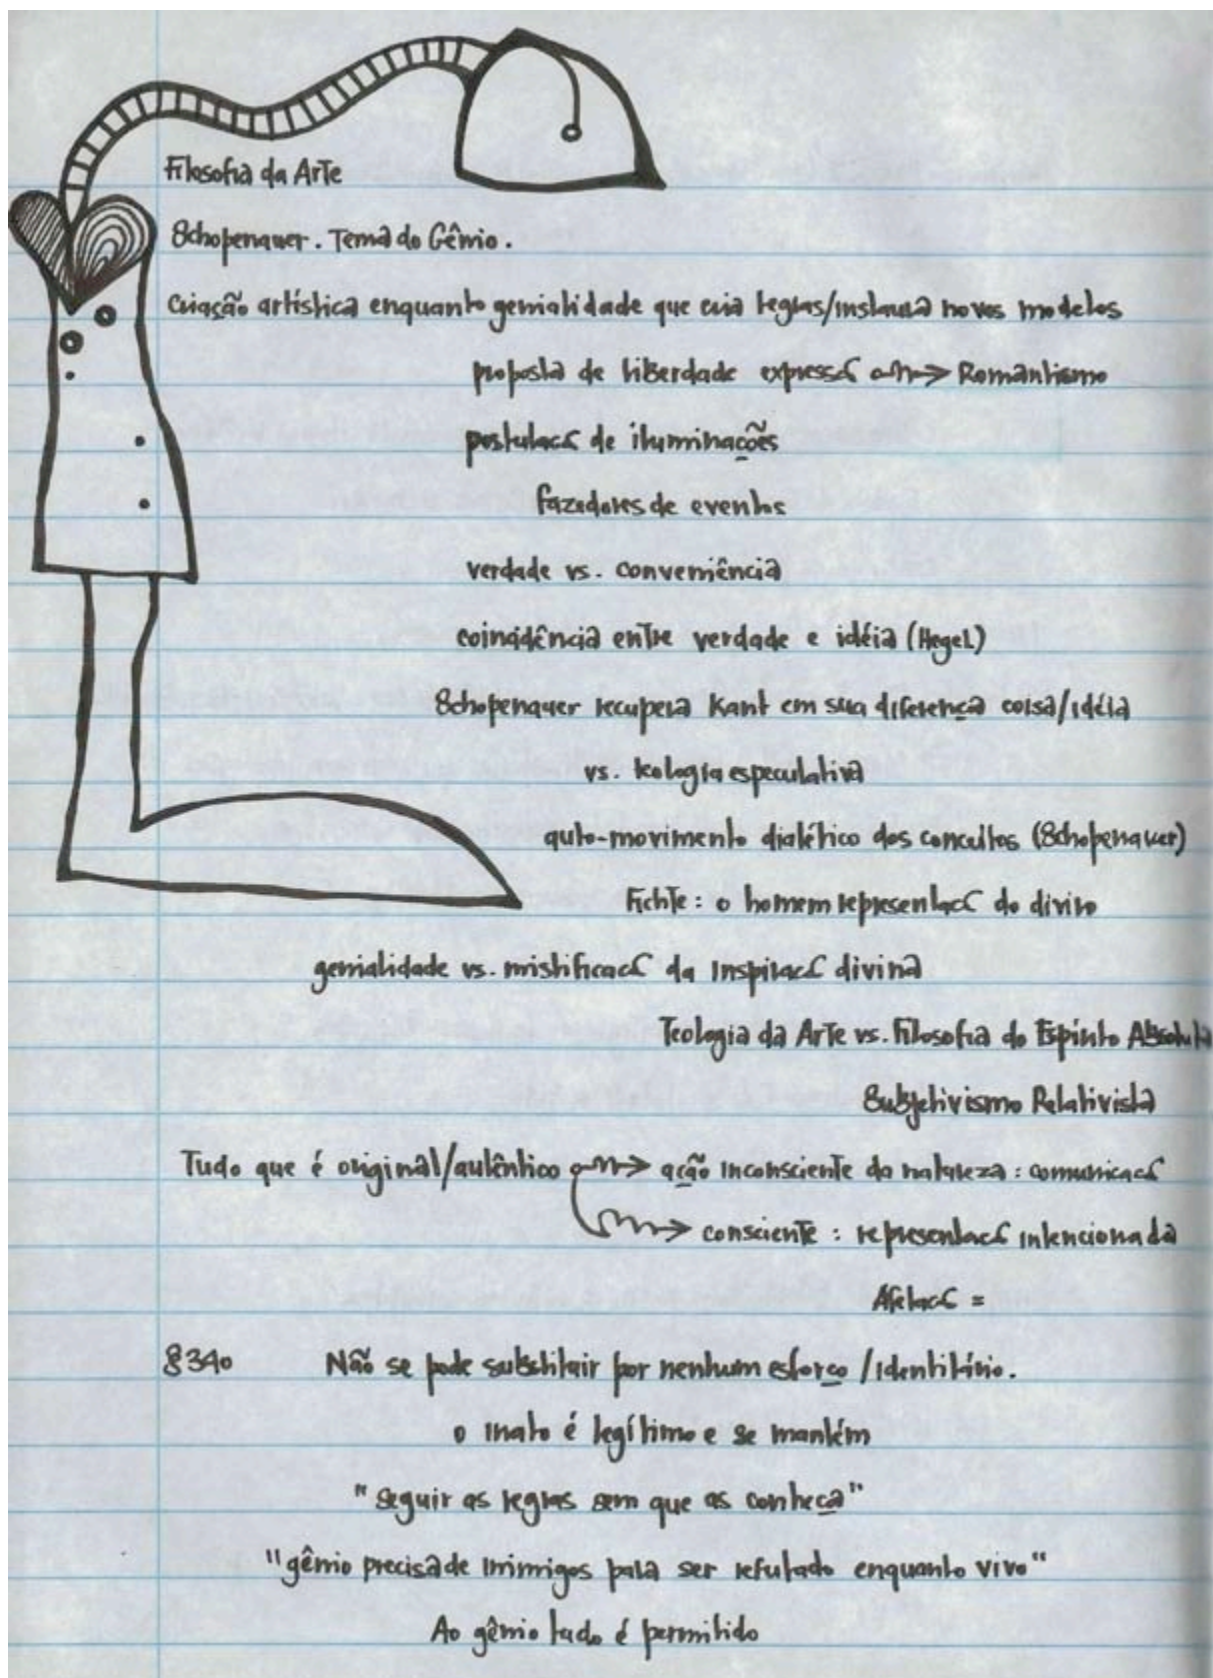 Filosofia da Arte
Schopenauer. Tema do Gênio.
criação artística enquanto genialidade que cria regras/instaura novos modelos
proposta de liberdade expressão → Romantismo
postulação de iluminações
fazedores de eventos
verdade vs. conveniência
coincidência entre verdade e idéia (Hegel)
Schopenauer recupera Kant em sua diferença coisa/idéia
vs. teologia especulativa
auto-movimento dialético dos conceitos (Schopenauer)
Fichte: o homem representação do divino
genialidade vs. mistificação da inspiração divina
Teologia da Arte vs. Filosofia do Espírito Absoluto
Subjetivismo Relativista
Tudo que é original/autêntico → ação inconsciente da natureza: comunicação
→ consciente: representação intencionada
Afetação =
§340 Não se pode substituir por nenhum esforço/identitário.
o inato é legítimo e se mantém
"seguir as regras sem que as conheça"
"gênio precisa de inimigos para ser refutado enquanto vivo"
Ao gênio tudo é permitido